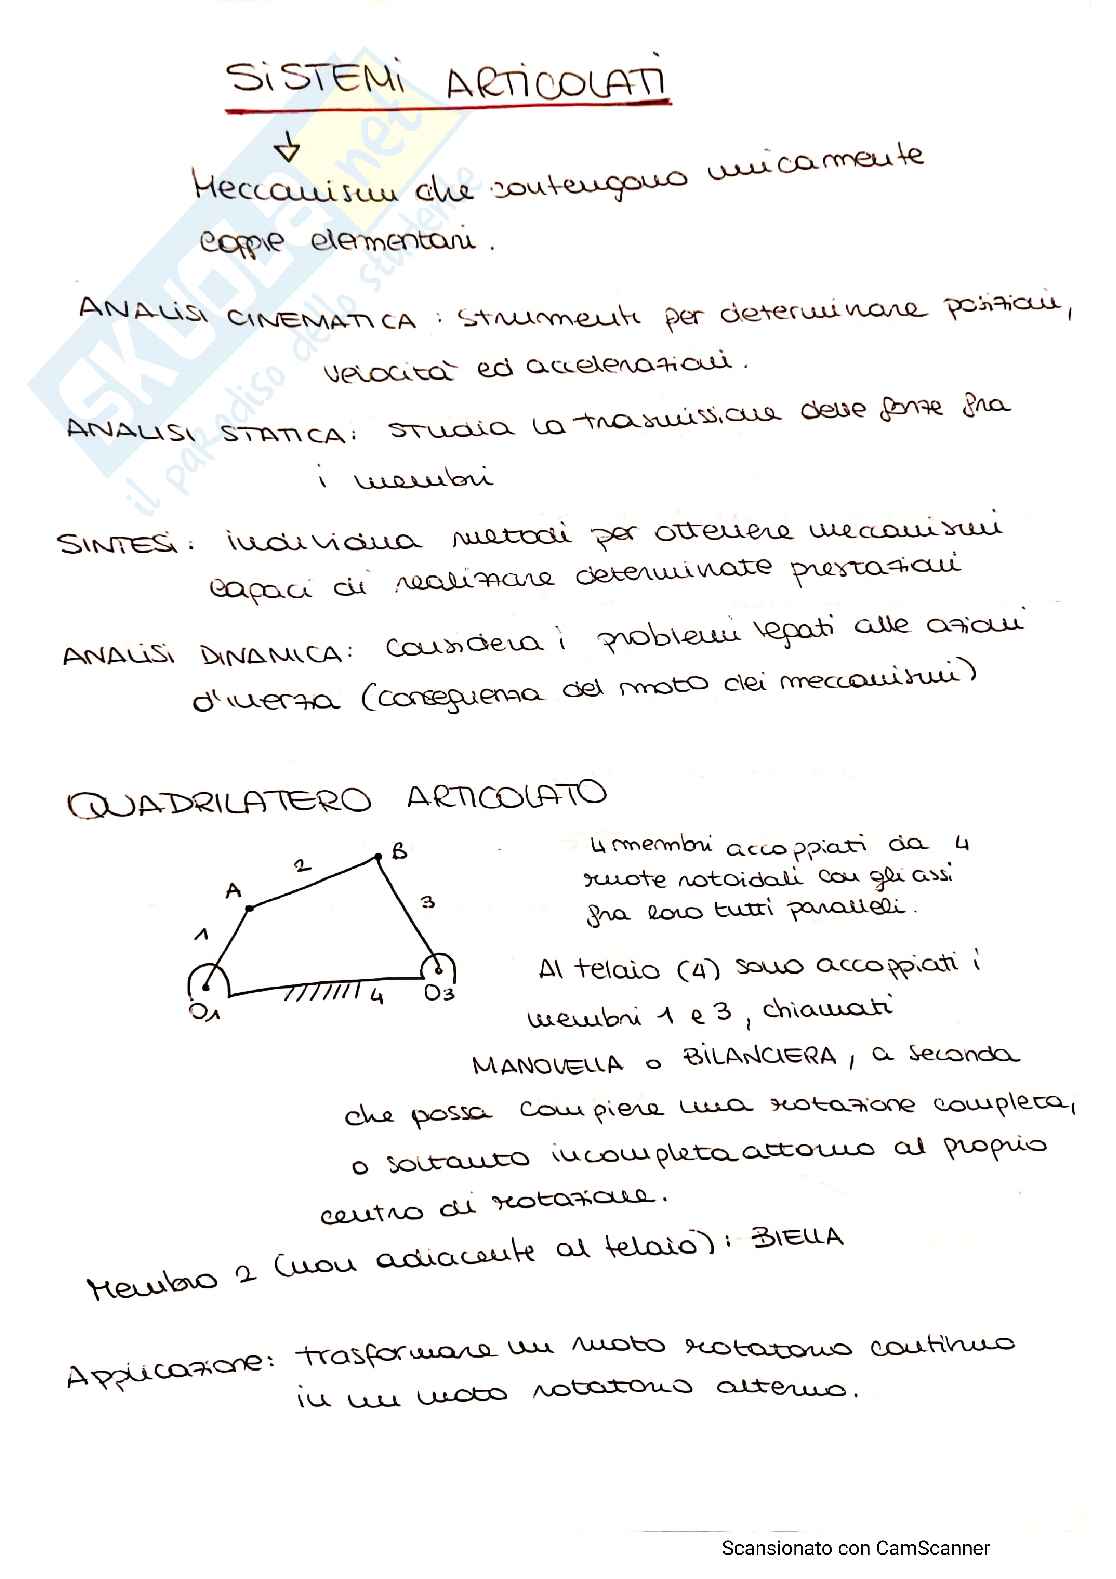 SISTEMI ARTICOLATI
Meccanismi che contengono unicamente
coppie elementari.
ANALISI CINEMATICA : strumenti per determinare posizioni,
velocità ed accelerazioni.
ANALISI STATICA: studia la trasmissione delle forze fra
i membri
SINTESI: individua metodi per ottenere meccanismi
capaci di realizzare determinate prestazioni
ANALISI DINAMICA: considera i problemi legati alle azioni
d'inerzia (conseguenza del moto dei meccanismi)
QUADRILATERO ARTICOLATO
4 membri accoppiati da 4
ruote rotoidali con gli assi
fra loro tutti paralleli.
A
2
B
1
3
O1
4
O3
Al telaio (4) sono accoppiati i
membri 1 e 3, chiamati
MANOVELLA o BILANCIERA, a seconda
che possa compiere una rotazione completa,
o soltanto incompleta attorno al proprio
centro di rotazione.
Membro 2 (non adiacente al telaio): BIELLA
Applicazione: trasformare un moto rotatorio continuo
in un moto rotatorio alterno.
SKUOLA.net
il paradiso dello studente
Scansionato con CamScanner